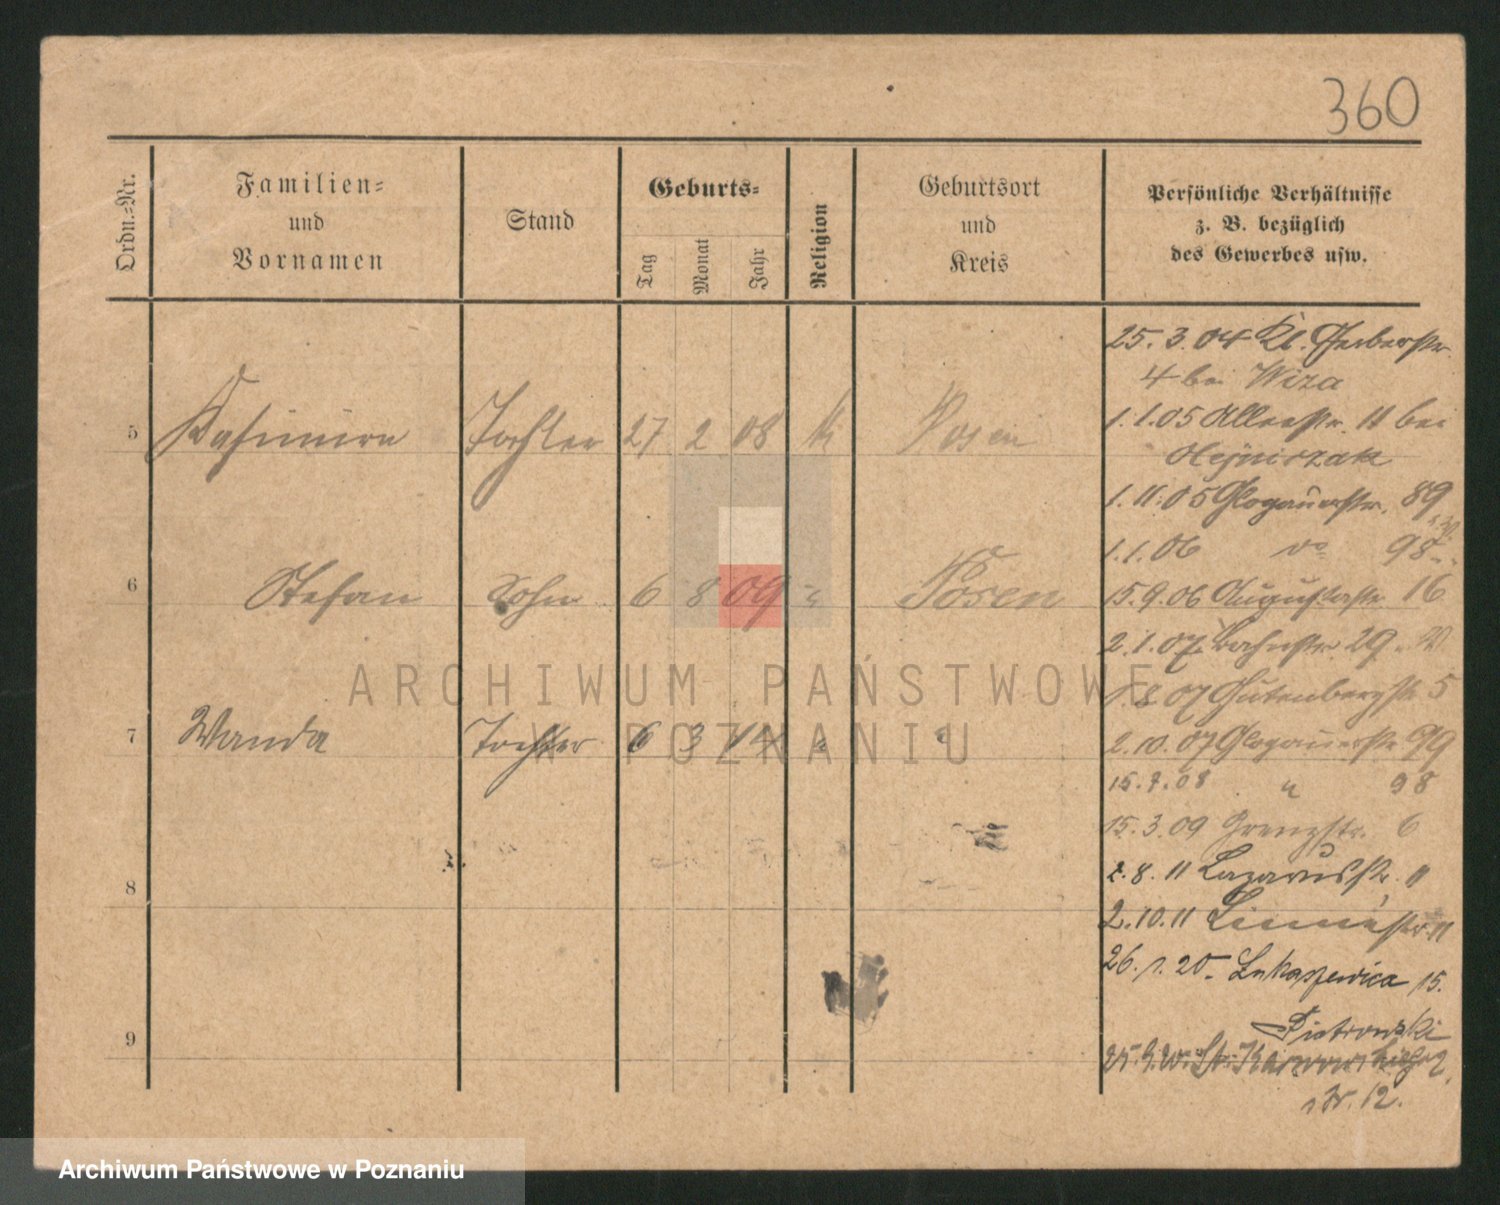 360
Ordn.=Nr.
Familien=
und
Vornamen
Stand
Geburts=
Tag
Monat
Jahr
Religion
Geburtsort
und
Kreis
Persönliche Verhältnisse
z. B. bezüglich
des Gewerbes usw.
25. 3. 04 Kl. Gerberstr.
4 bei Wiza
5 Kasimira Tochter 27 2 08 Posen
1. 1. 05 Alleestr. 11 bei
1. 11. 05 Glogauerstr. 89
1. 1. 06 do 98
6 Stefan Sohn 6 8 09 " Posen
15. 9. 06 Augustastr. 16
2. 1. 07 Bahnstr. 29
1. 8. 07 Gutenbergstr. 5
7 Wanda Tochter 6 3 14 " "
2. 10. 07 Glogauerstr. 99
15. 7. 08 " 98
15. 3. 09 Grenzstr. 6
8
2. 8. 11 Lazarusstr. 11
2. 10. 11 Linnéstr. 11
26. 1. 20. Lukaszewicza 15.
Piotrowski
9
25. 9. 20.
Nr. 12.
ARCHIWUM PAŃSTWOWE
W POZNANIU
Archiwum Państwowe w Poznaniu